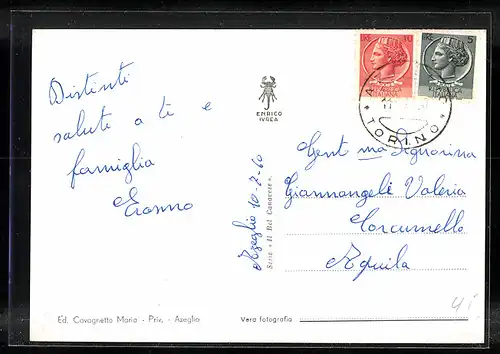 Distinti
saluti a te e
famiglia
ENRICO
IVREA
Azeglio 10-2-60
Serie « Il Bel Canavese ».
10
5
TORINO
Gent ma Signorina
Giannangeli Valeria
Corcumello
Aquila
Ed. Cavagnetto Maria - Priv. - Azeglio
Vera fotografia